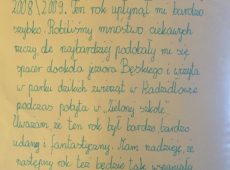 2008/2009. Ten rok upłynął mi bardzo
szybko. Robiliśmy mnóstwo ciekawych
rzeczy ale najbardziej podobały mi się
spacer dookoła jeziora Bęskiego i wizyta
w parku dzikich zwierząt w Kadzidłowie
podczas pobytu w "Zielonej szkole".
Uważam że ten rok był bardzo bardzo
udany i fantastyczny. Mam nadzieję, że
następny rok też będzie tak wspaniały